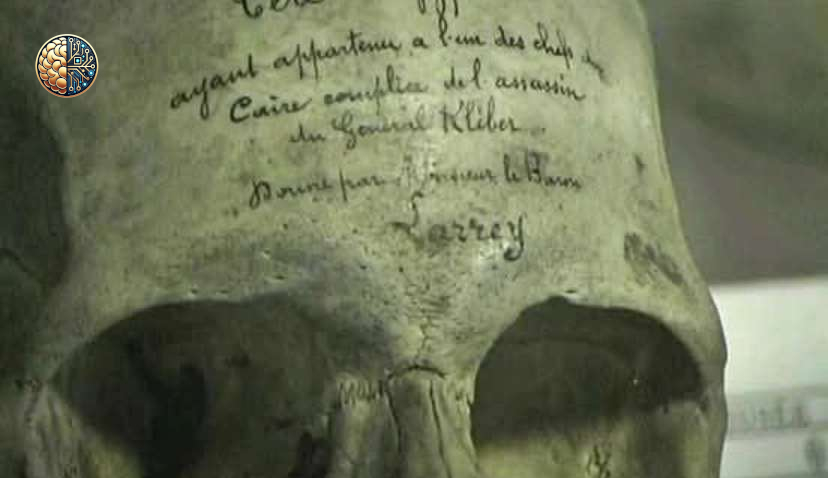 ayant appartenu a l'un des chefs du
Caire complice de l'assassin
du Général Kléber
Donné par Monsieur le Baron
Larrey